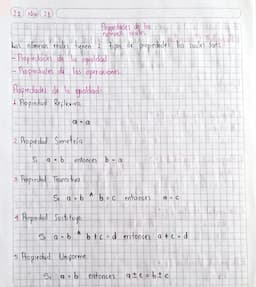 Propiedades de los
números reales
Los números reales tienen 2 tipos de propiedades los cuales son:
- Propiedades de la igualdad
- Propiedades de las operaciones
Propiedades de la igualdad
1. Propiedad Reflexiva
a = a
2. Propiedad Simetría
Si a = b entonces b = a
3. Propiedad Transitiva
Si a = b ^ b = c entonces a = c
4. Propiedad
Si a = b ^ b + c = d entonces a + c = d
5. Propiedad Uniforme
Si a = b entonces a ± c = b ± c